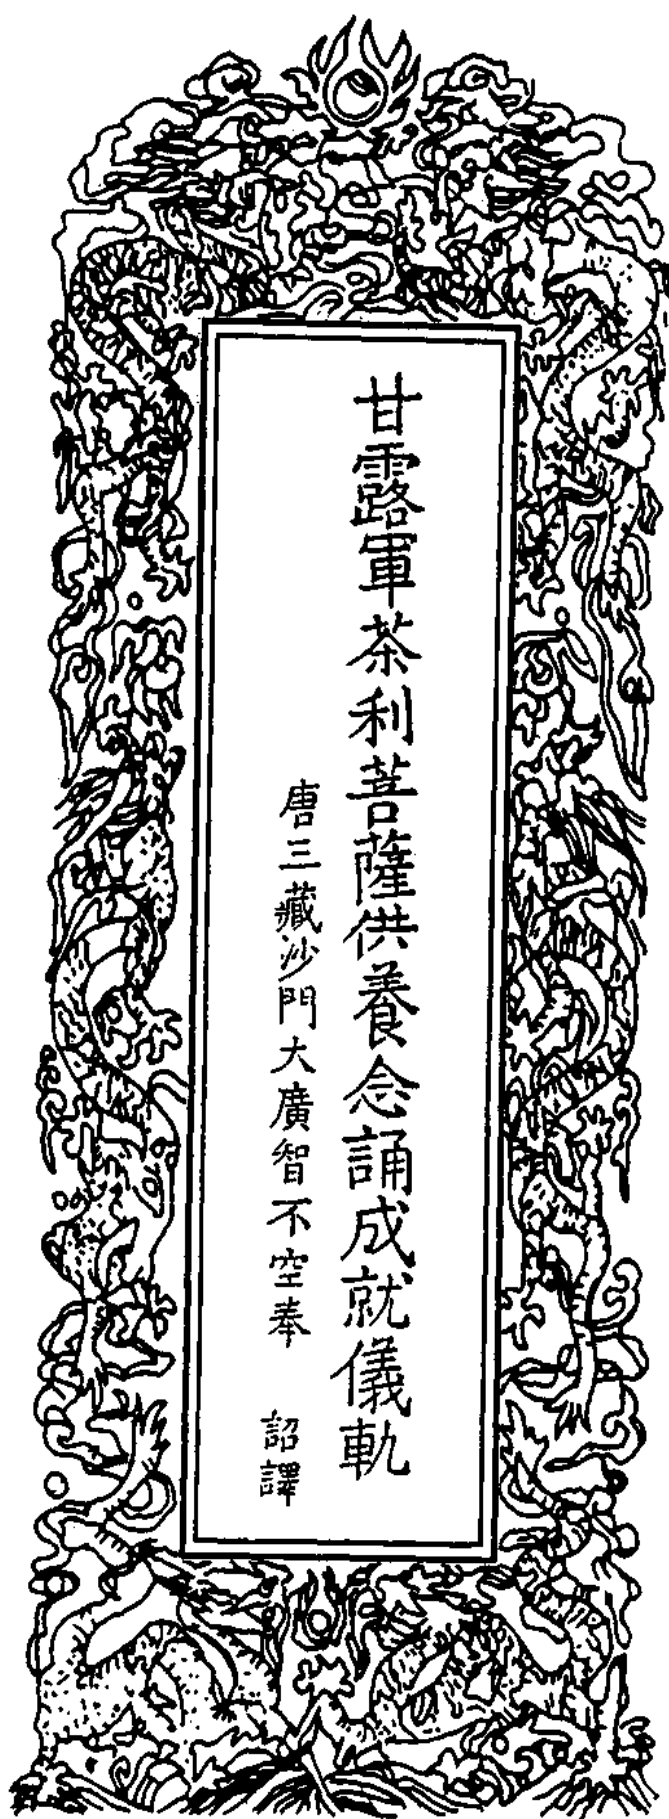 甘露軍茶利菩薩供養念誦成就儀軌
唐三藏沙門大廣智不空奉　詔譯